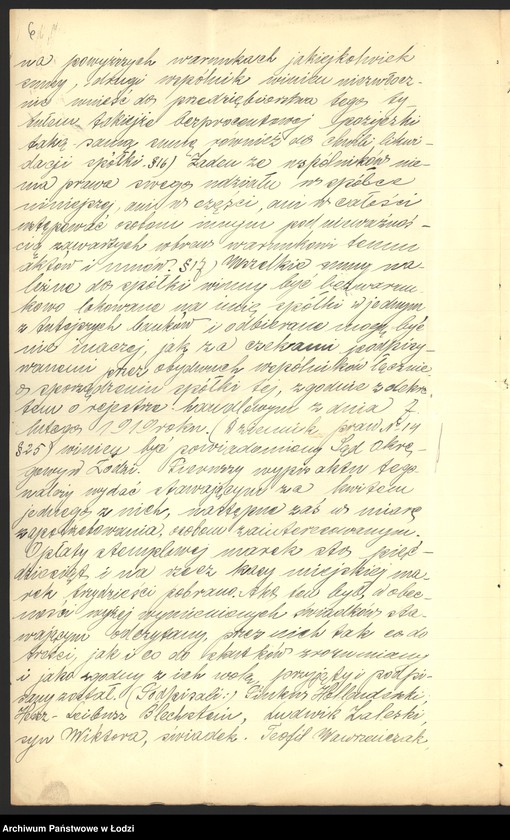 6
na powyższych warunkach jakiejkolwiek
sumy, drugi wspólnik winien niezwłocz-
nie wnieść do przedsiębiorstwa tego ty-
tułem takiejże bezprocentowej pożyczki
taką samą sumę również do chwili likwi-
dacji spółki. §16) Żaden ze wspólników nie
ma prawa swego udziału w spółce
niniejszej, ani w części, ani w całości
ustępować osobom innym pod nieważnoś-
cią zawartych wbrew warunkowi temu
aktów i umów. §17) Wszelkie sumy na-
leżne do spółki winny być bezwarun-
kowo lokowane na imię spółki w jednym
z tutejszych banków i odbierane mogą być
nie inaczej, jak za czekami podpisy-
wanemi przez obydwuch wspólników łącznie
o sporządzeniu spółki tej, zgodnie z dekre-
tem o rejestrze handlowym z dnia 7.
lutego 1919 roku. (Dziennik praw № 14
§25) winien być powiadomiony Sąd Okrę-
gowy w Łodzi. Pierwszy wypis aktu tego
należy wydać stawającym za kwitem
jednego z nich, następne zaś w miarę
zapotrzebowania, osobom zainteresowanym.
Opłaty stemplowej marek sto pięć-
dziesiąt i na rzecz kasy miejskiej ma-
rek trzydzieści pobrano. Akt ten był w obec-
ności wyżej wymienionych świadków sta-
wającym odczytany, przez nich tak co do
treści, jak i co do skutków zrozumiany
i jako zgodny z ich wolą, przyjęty i podpi-
sany został. (Podpisali:) Pinkus Hollenderski,
Hersz-Leibusz Blachstein, Ludwik Zaleski,
syn Wiktora, świadek. Teofil Wawrzniczak,
Archiwum Państwowe w Łodzi